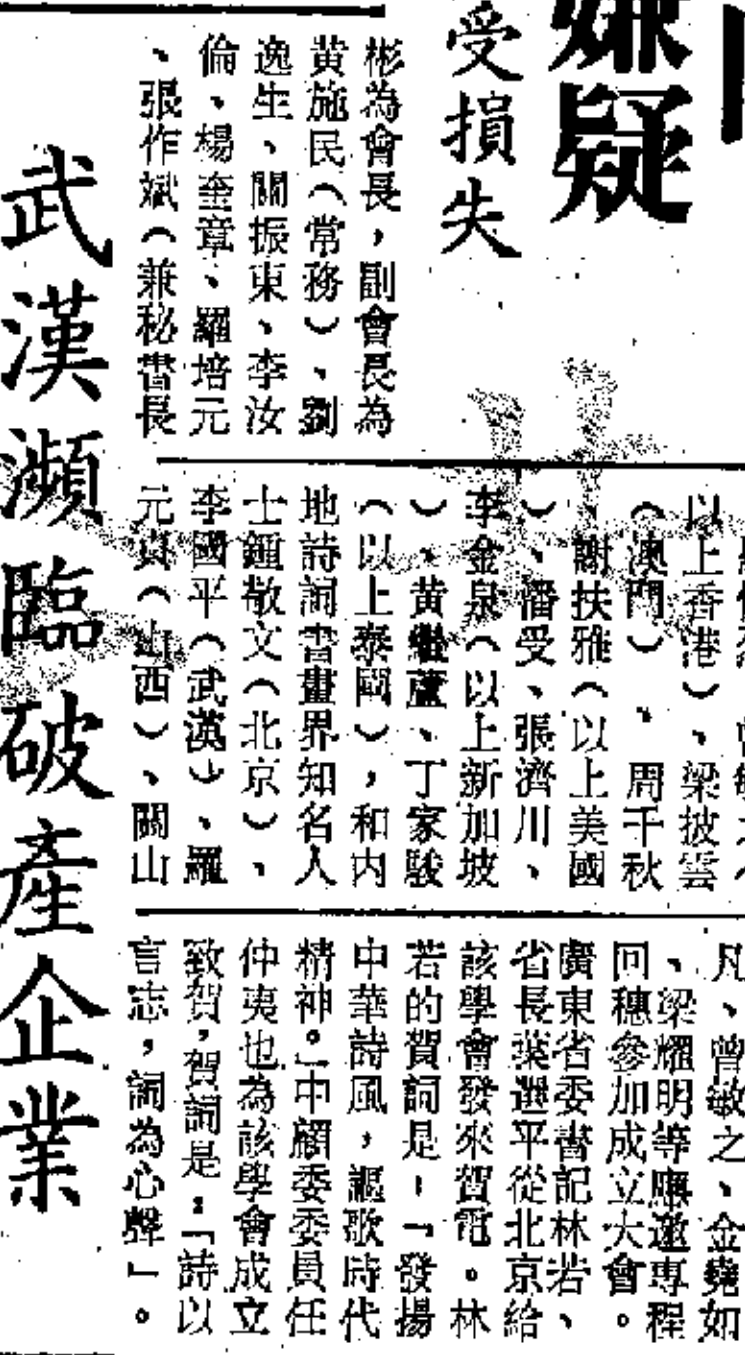 嫌疑
受損失
彬為會長，副會長為
黄施民（常務）、劉
逸生、關振東、李汝
倫、楊奎章、羅培元
、張作斌（兼秘書長
以上香港）、梁披雲
（澳門）、周千秋
、謝扶雅（以上美國
）、潘受、張濟川、
李金泉（以上新加坡
）、黄繼蘆、丁家駿
（以上泰國），和内
地詩詞書畫界知名人
士鍾敬文（北京）、
李國平（武漢）、羅
元貞（山西）、關山
凡、曾敏之、金堯如
、梁耀明等應邀專程
回穗參加成立大會。
廣東省委書記林若、
省長葉選平從北京給
該學會發來賀電。林
若的賀詞是：「發揚
中華詩風，謳歌時代
精神。」中顧委委員任
仲夷也為該學會成立
致賀，賀詞是：「詩以
言志，詞為心聲」。
武漢瀕臨破產企業